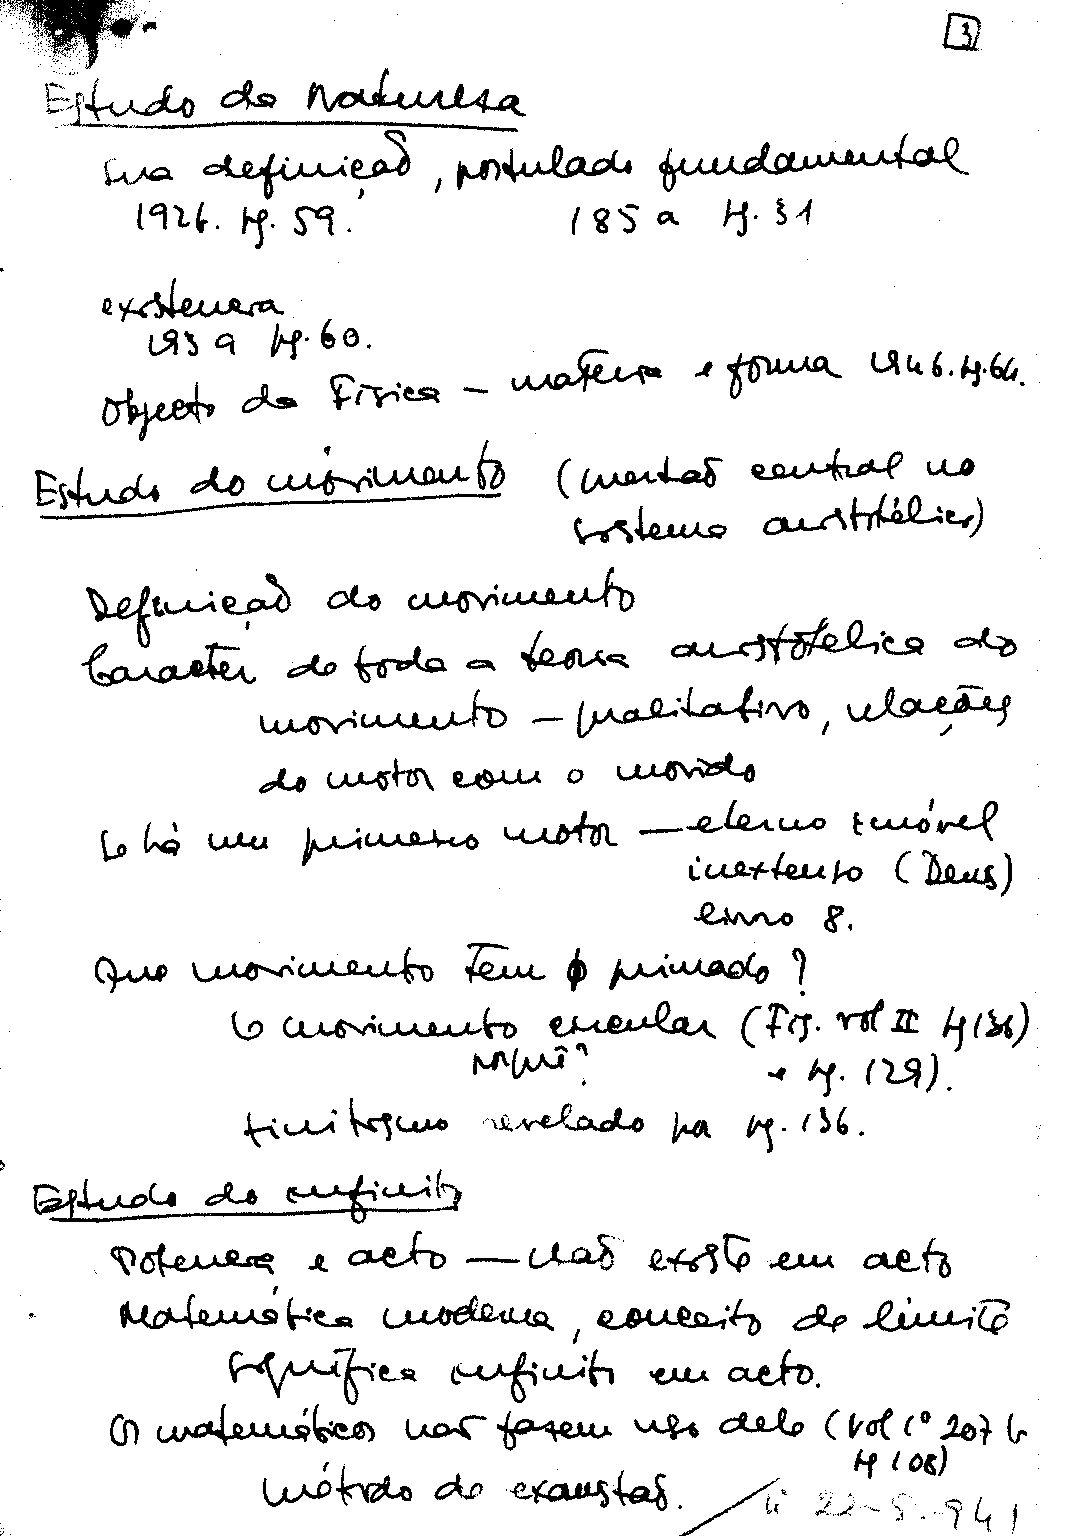 3
Estudo da Natureza
sua definição, postulado fundamental
192 b. pg. 59. 185 a pg. 31
existencia
193 a pg. 60.
Objecto da Física – matéria e forma 194 b. pg. 64.
Estudo do movimento (questão central no
sistema aristotélico)
Definição do movimento
Caracter de toda a teoria aristotélica do
movimento – qualitativo, relações
do motor com o movido
há um primeiro motor — eterno imóvel
inextenso (Deus)
livro 8.
Que movimento tem o primado?
O movimento circular (Fis. vol II pg 136)
porquê? e pg. 129).
finitismo revelado na pg. 136.
Estudo do infinito
Potencia e acto — não existe em acto
Matemática moderna, conceito de limite
significa infinito em acto.
Os matemáticos não fazem uso dele (vol 1º 207 b
pg 108)
método de exaustão.
22-5-941